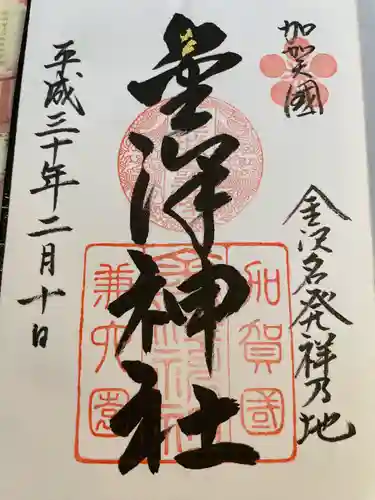 加賀國
金沢名発祥乃地
金澤神社
平成三十年二月十日
加賀國
金沢神社
兼六園